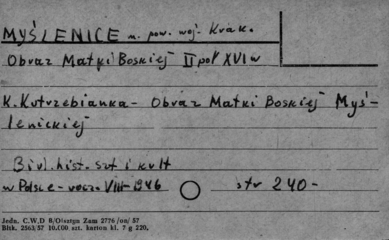 MYŚLENICE m. pow. woj. Krak.
Obraz Matki Boskiej II poł XVI w
K. Kutrzebianka - Obraz Matki Boskiej Myś-
lenickiej
Biul. hist. szt i kult
w Polsce - rocz. VIII - 1946 str 240 -
Jedn. C.W.D 8/Olsztyn Zam 2776/on/57
Bltk. 2563/57 10.000 szt. karton kl. 7 g 220,